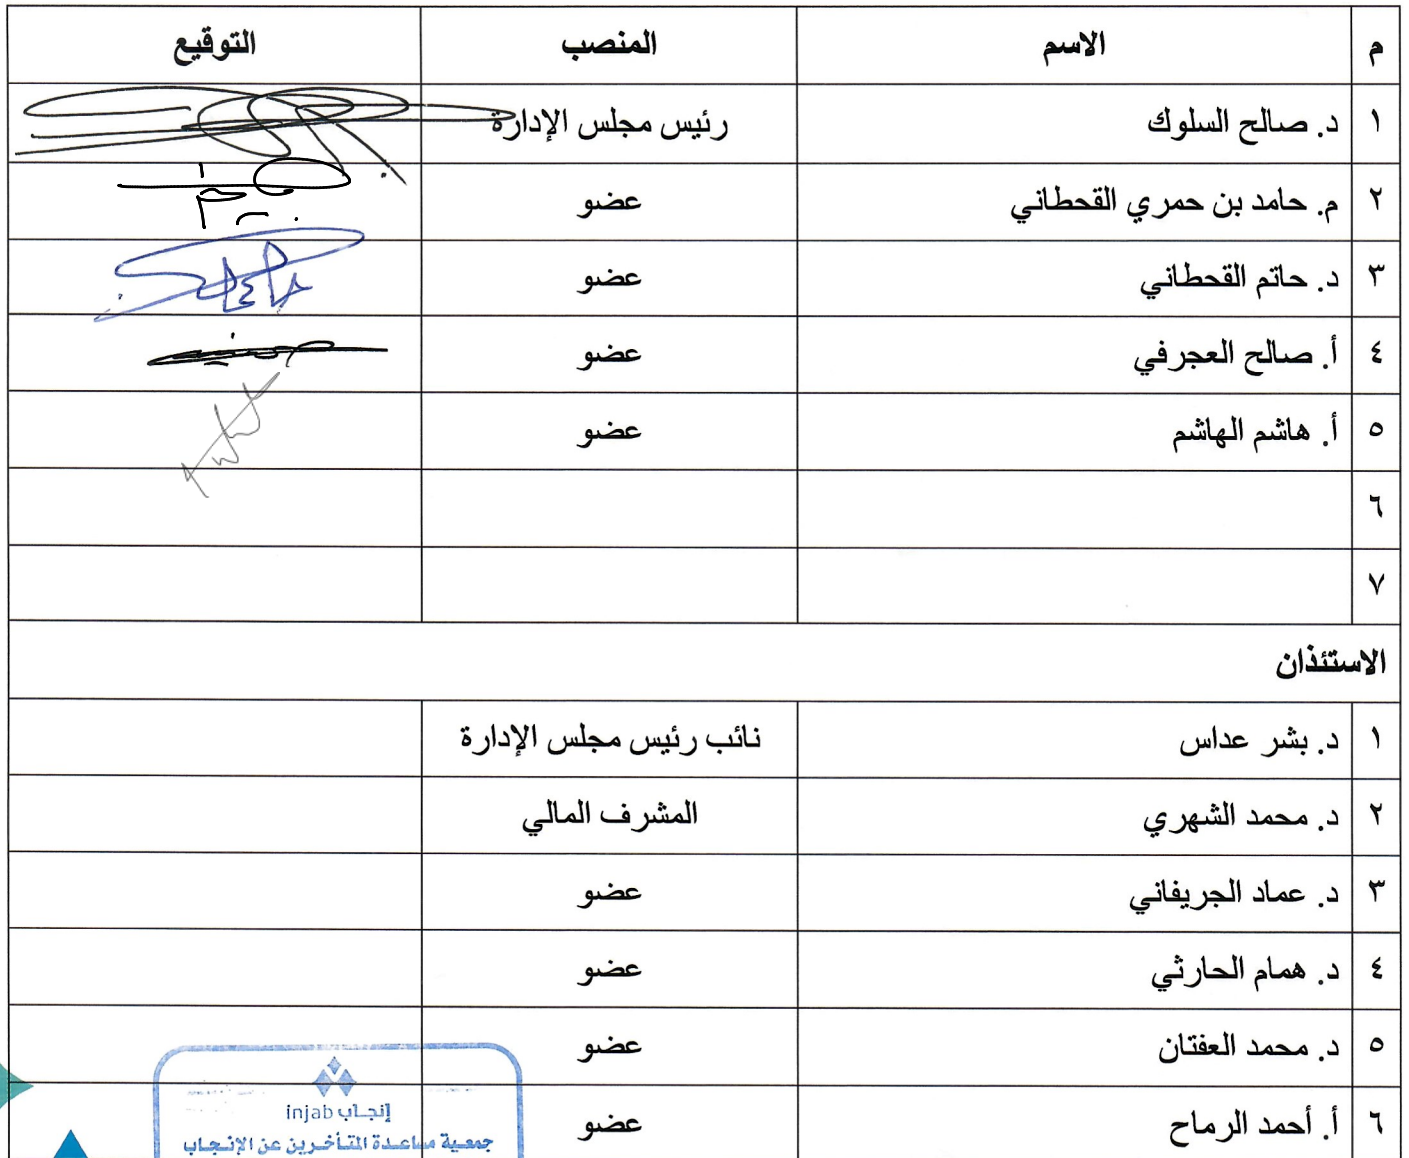 م الاسم المنصب التوقيع
١ د. صالح السلوك رئيس مجلس الإدارة
٢ م. حامد بن حمري القحطاني عضو
٣ د. حاتم القحطاني عضو
٤ أ. صالح العجرفي عضو
٥ أ. هاشم الهاشم عضو
٦
٧
الاستئذان
١ د. بشر عداس نائب رئيس مجلس الإدارة
٢ د. محمد الشهري المشرف المالي
٣ د. عماد الجريفاني عضو
٤ د. همام الحارثي عضو
٥ د. محمد العفتان عضو
٦ أ. أحمد الرماح عضو
إنجاب injab
جمعية مساعدة المتأخرين عن الإنجاب